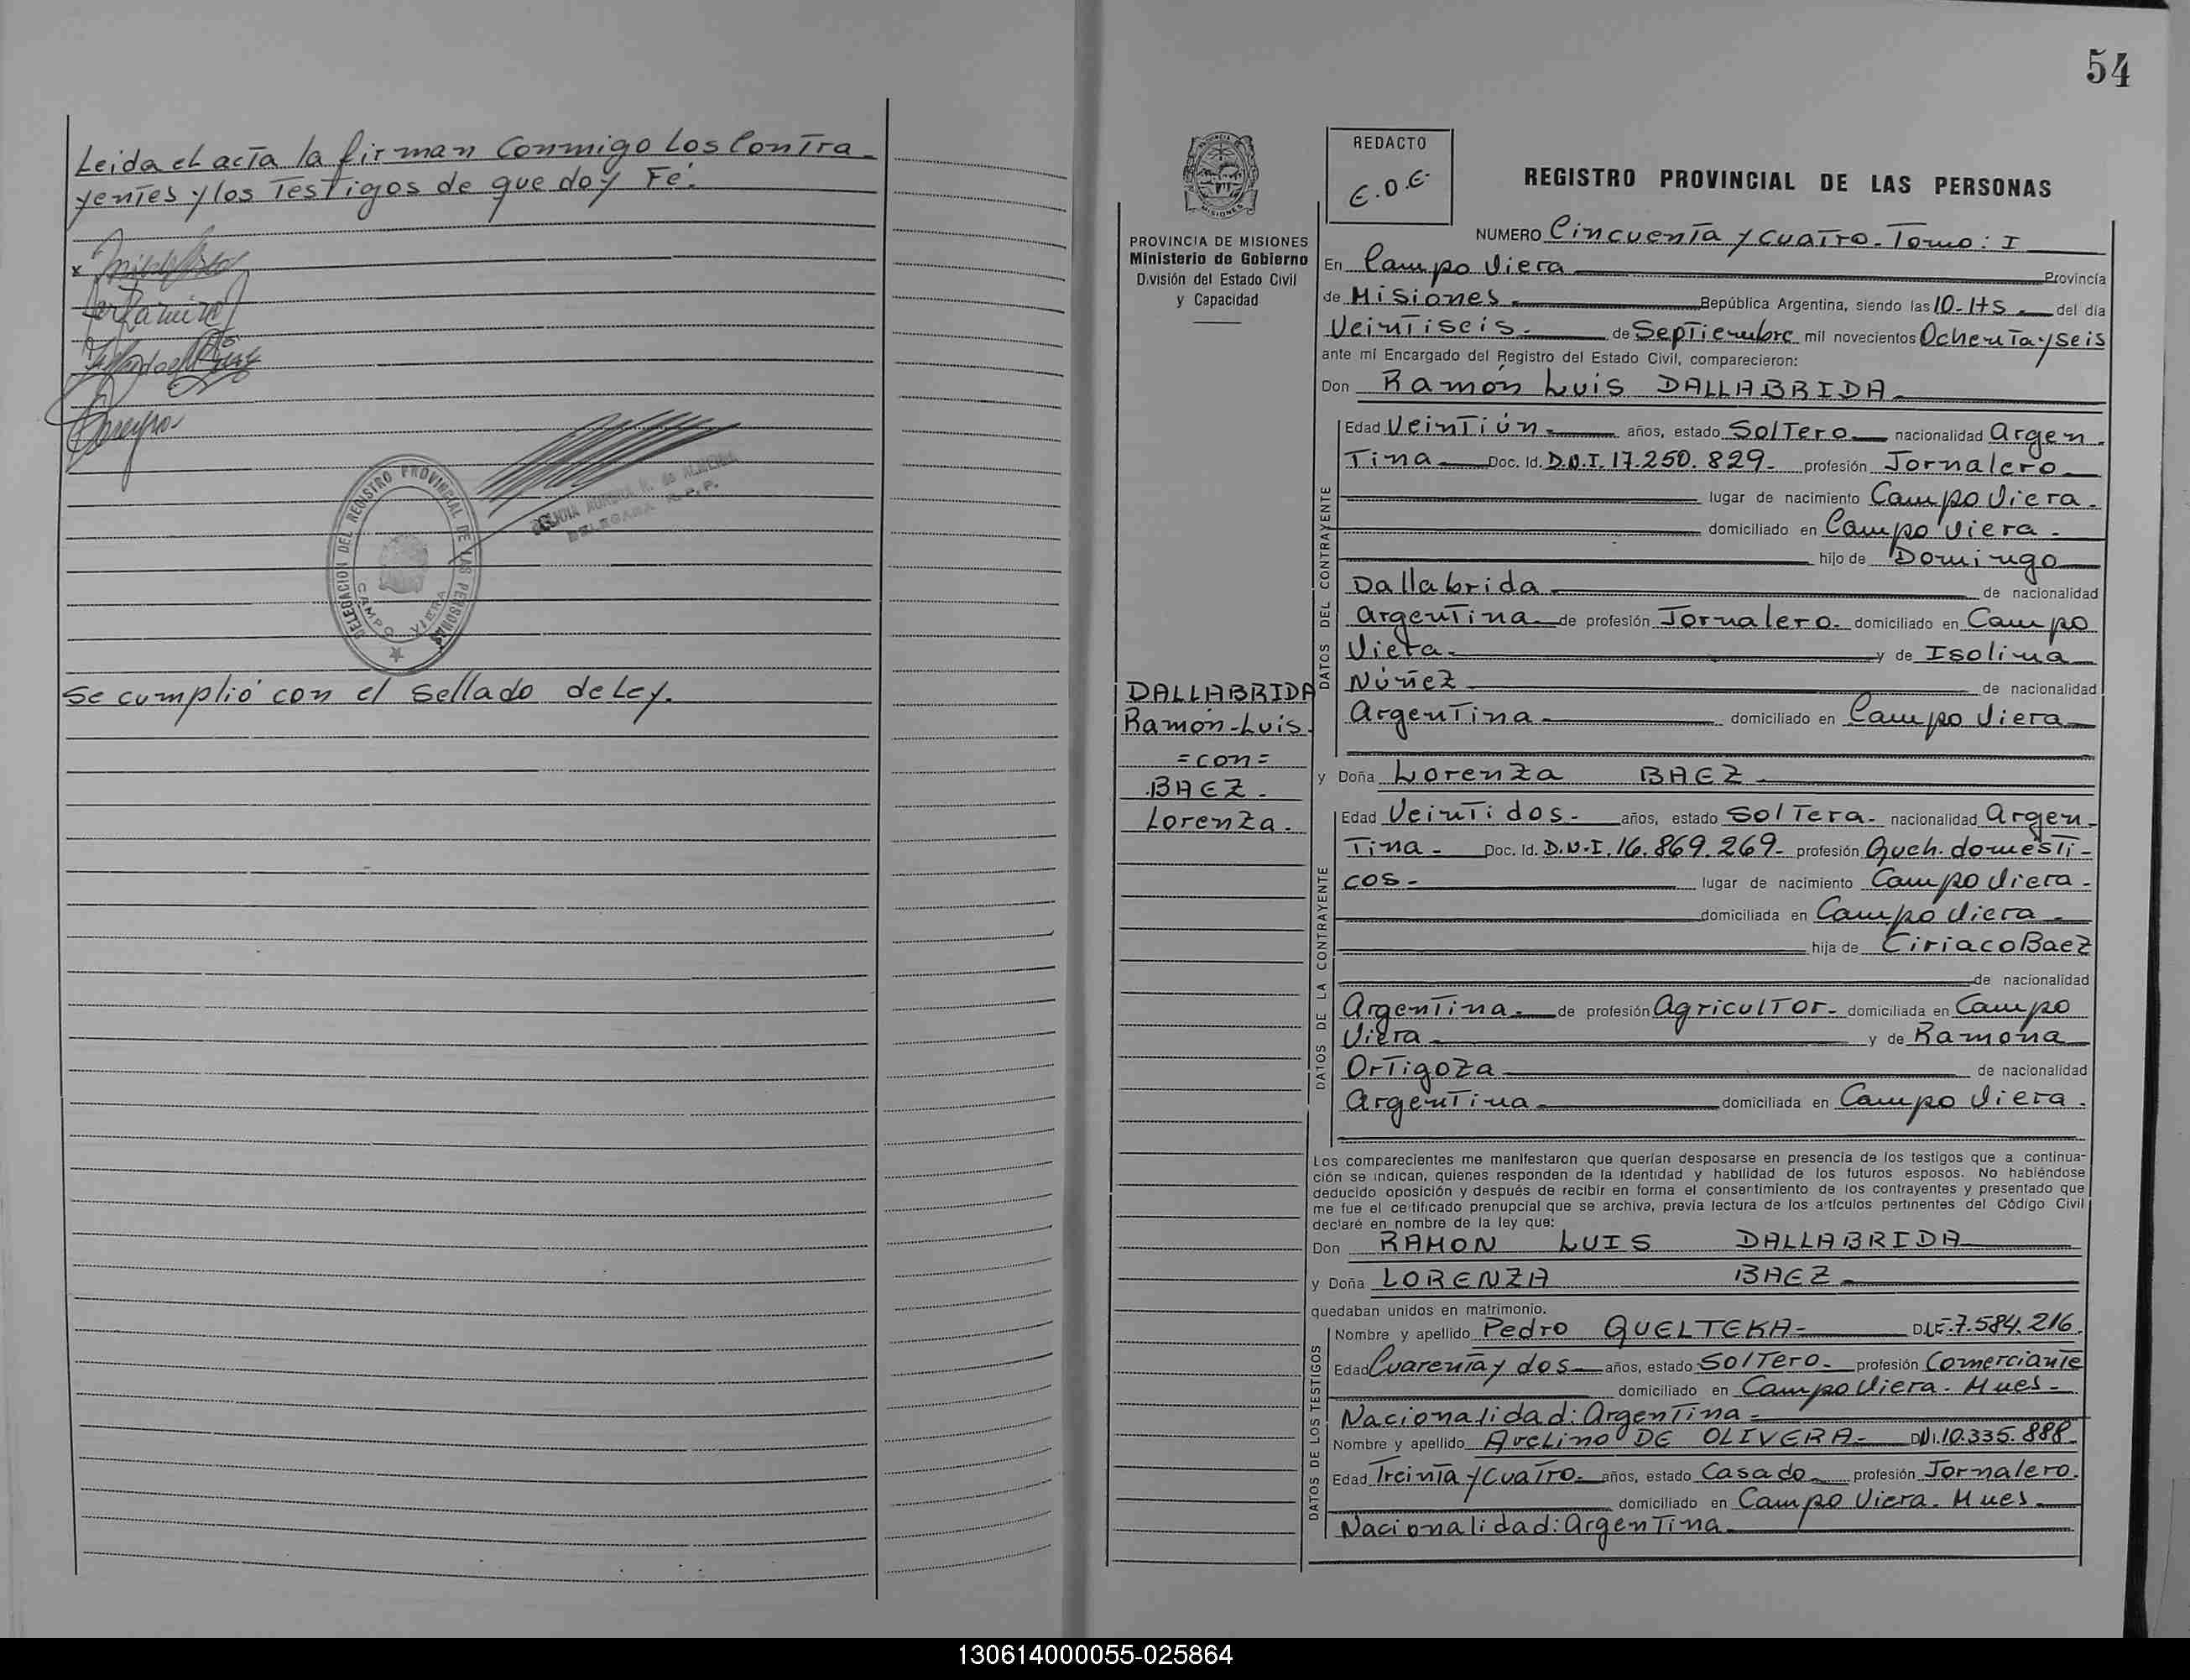 Leida el acta la firman Conmigo Los Contra-
yentes y los Testigos de que doy Fé.
x
DELEGACION DEL REGISTRO PROVINCIAL DE LAS PERSONAS
CAMPO VIERA
DELEGADA R.P.P.
Se cumplió con el Sellado de Ley.
54
MISIONES
PROVINCIA DE MISIONES
Ministerio de Gobierno
División del Estado Civil
y Capacidad
DALLABRIDA
Ramón-Luis.
=con=
BAEZ.
Lorenza.
REDACTO
E.D.E.
REGISTRO PROVINCIAL DE LAS PERSONAS
NUMERO Cincuenta y cuatro. Tomo: I
En Campo Viera Provincia
de Misiones. República Argentina, siendo las 10-Hs. del día
Veintiseis. de Septiembre mil novecientos Ochenta y seis
ante mi Encargado del Registro del Estado Civil, comparecieron:
Don Ramón Luis DALLABRIDA.
DATOS DEL CONTRAYENTE
Edad Veintiún. años, estado Soltero nacionalidad Argen-
tina Doc. Id. D.N.I. 17.250.829. profesión Jornalero
lugar de nacimiento Campo Viera.
domiciliado en Campo Viera.
hijo de Domingo
Dallabrida de nacionalidad
Argentina de profesión Jornalero. domiciliado en Campo
Viera. y de Isolina
Núñez de nacionalidad
Argentina domiciliado en Campo Viera
y Doña Lorenza BAEZ
DATOS DE LA CONTRAYENTE
Edad Veintidos. años, estado Soltera. nacionalidad Argen-
tina. Doc. Id. D.N.I. 16.869.269. profesión Queh. domésti-
cos. lugar de nacimiento Campo Viera.
domiciliada en Campo Viera
hija de Ciriaco Baez
de nacionalidad
Argentina. de profesión Agricultor. domiciliada en Campo
Viera y de Ramona
Ortigoza de nacionalidad
Argentina domiciliada en Campo Viera.
Los comparecientes me manifestaron que querían desposarse en presencia de los testigos que a continua-
ción se indican, quienes responden de la identidad y habilidad de los futuros esposos. No habiéndose
deducido oposición y después de recibir en forma el consentimiento de los contrayentes y presentado que
me fue el certificado prenupcial que se archiva, previa lectura de los artículos pertinentes del Código Civil
declaré en nombre de la ley que:
Don RAMON LUIS DALLABRIDA
y Doña LORENZA BAEZ
quedaban unidos en matrimonio.
DATOS DE LOS TESTIGOS
Nombre y apellido Pedro QUELTEKA- D.I.E. 7.584.216.
Edad Cuarenta y dos años, estado Soltero. profesión Comerciante
domiciliado en Campo Viera. Mnes.
Nacionalidad: Argentina.
Nombre y apellido Avelino DE OLIVERA. DNI. 10.335.888.
Edad Treinta y cuatro. años, estado Casado profesión Jornalero.
domiciliado en Campo Viera. Mnes
Nacionalidad: Argentina.
130614000055-025864